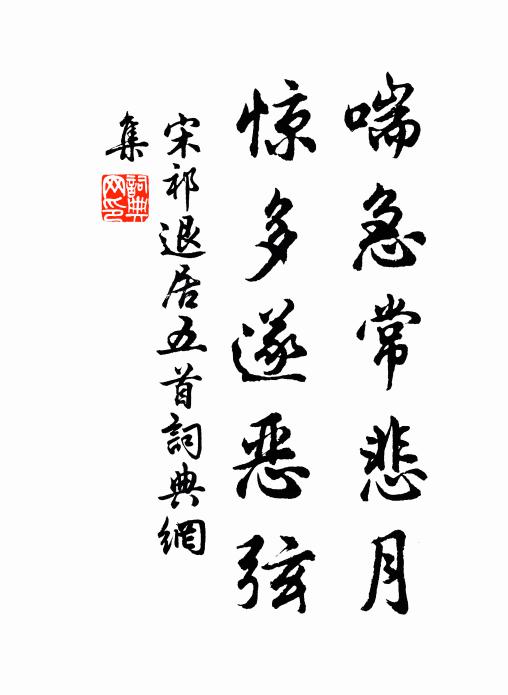 喘急常悲月
惊多遂恶弦
宋祁退居五首詞典網
集
詞典
网印